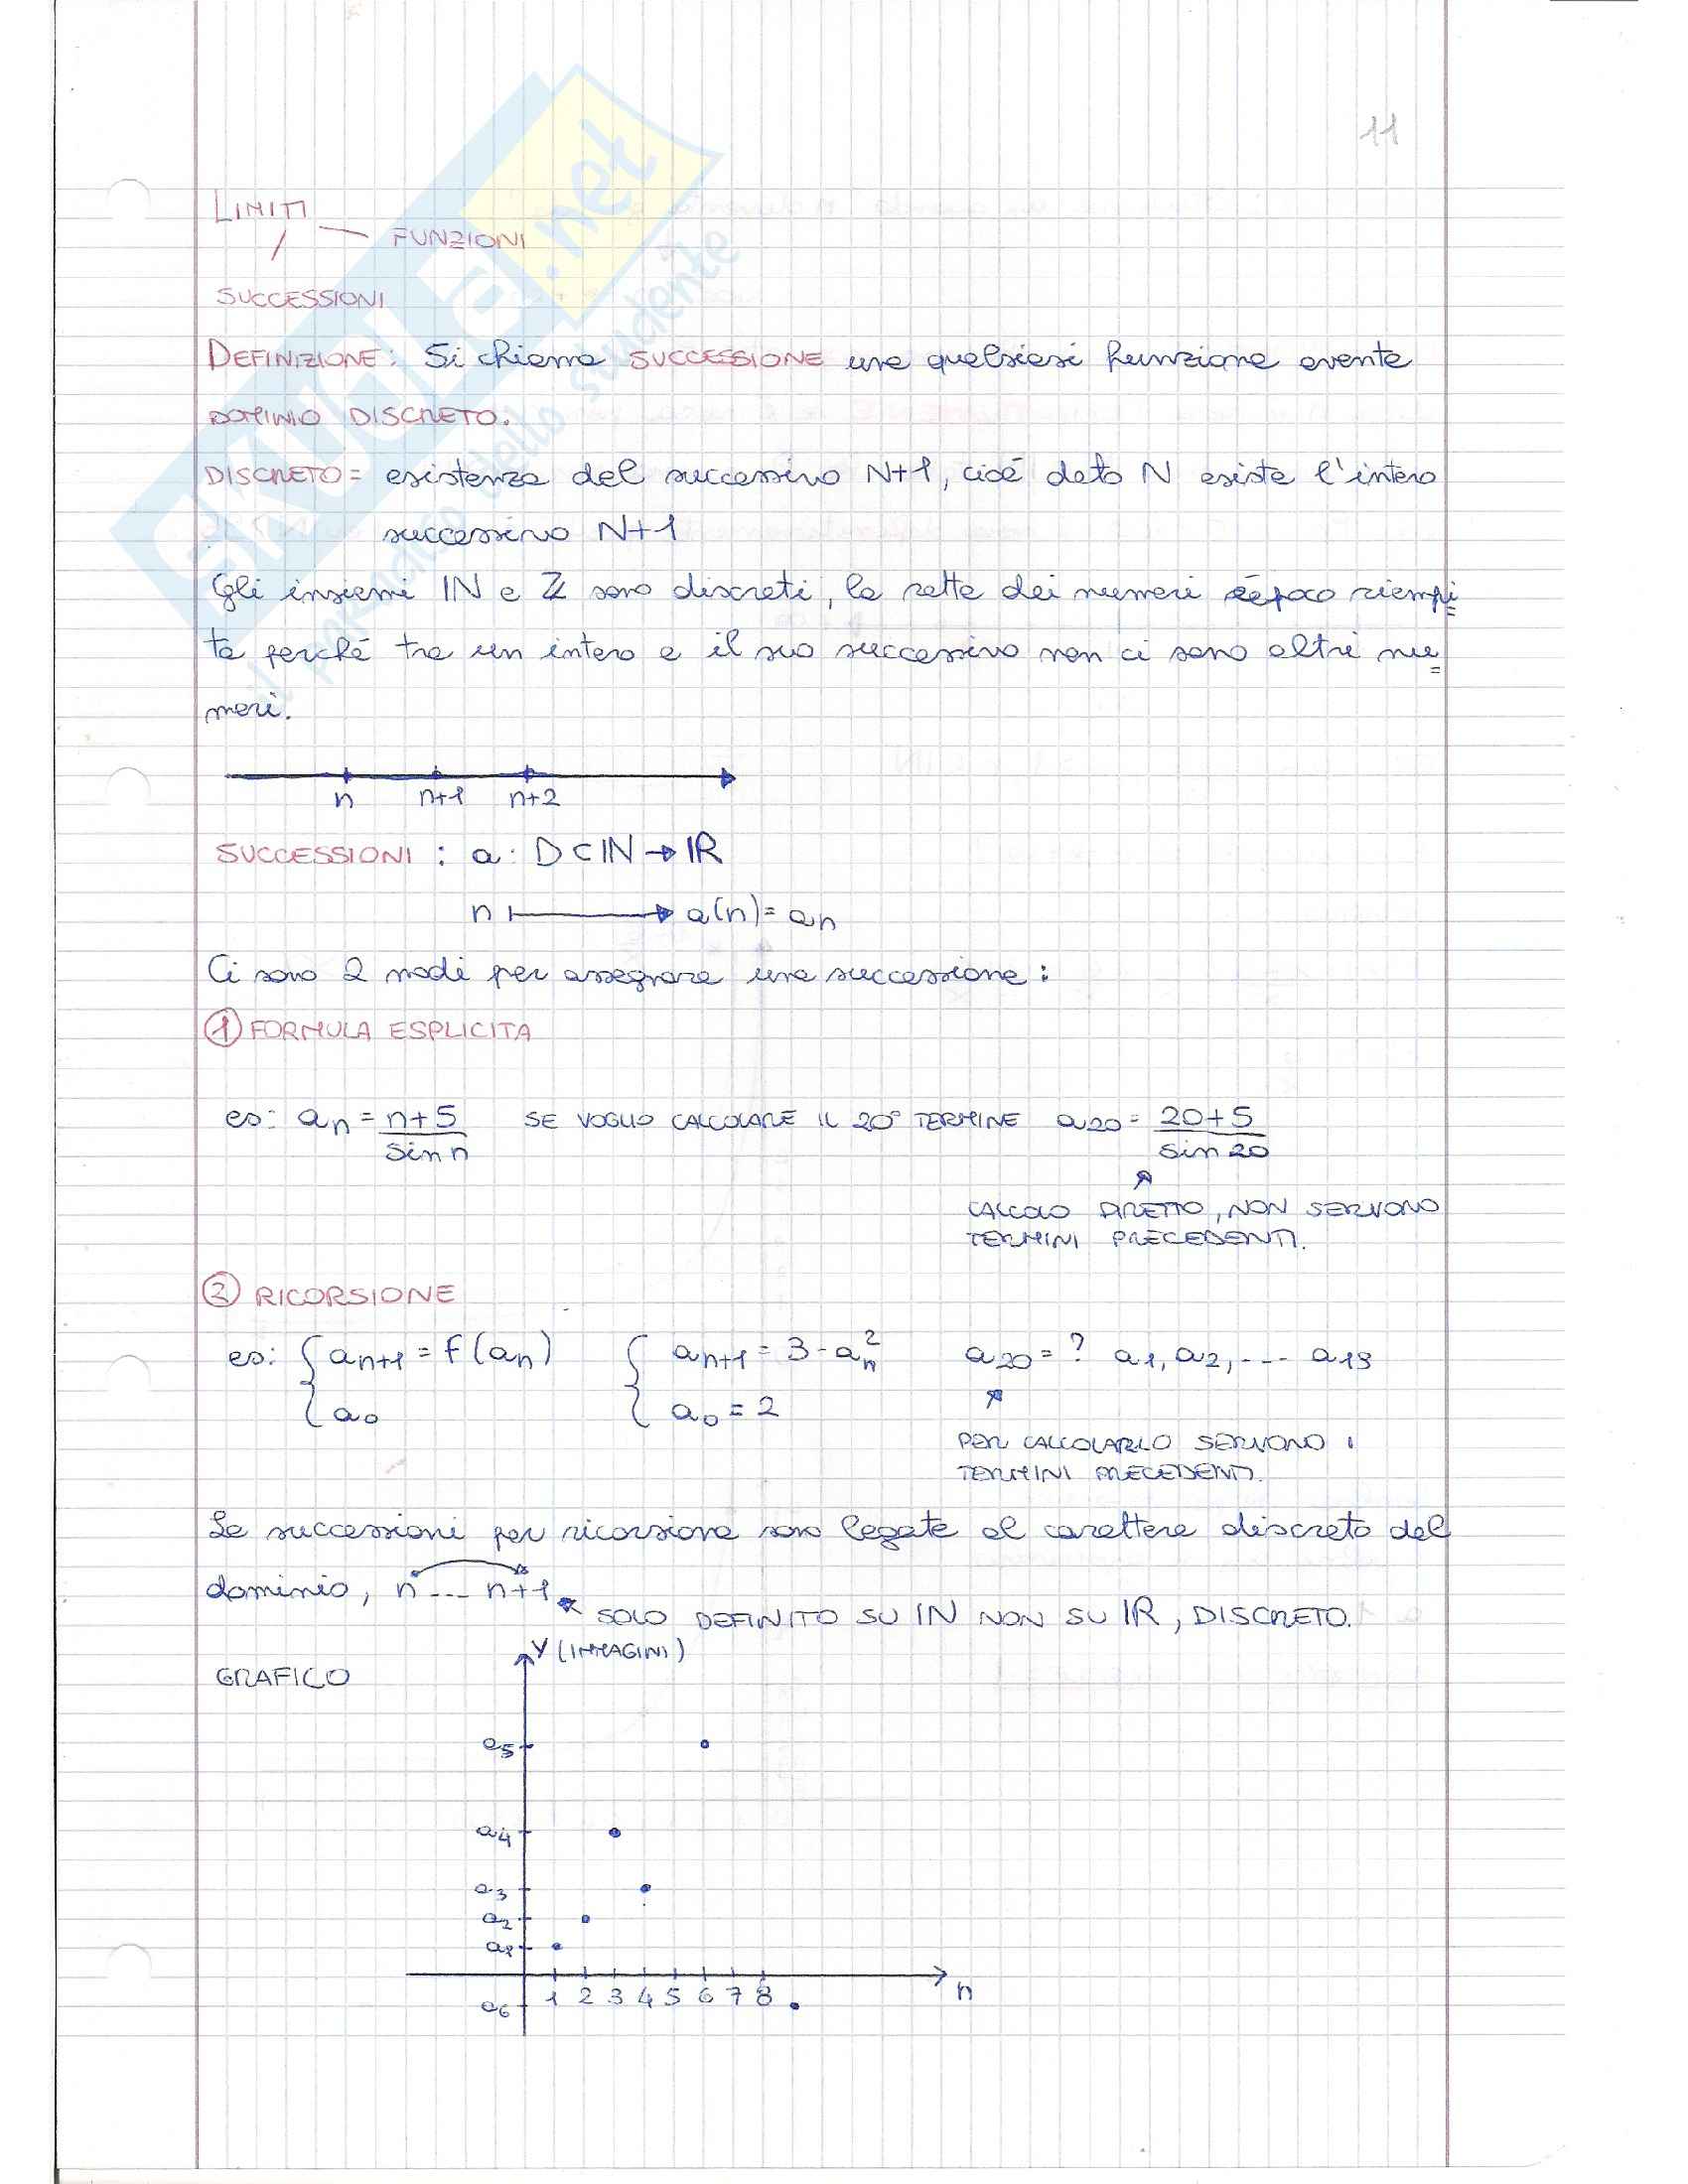 11
LIMITI
FUNZIONI
SUCCESSIONI
DEFINIZIONE: Si chiama SUCCESSIONE una qualsiasi funzione avente
DOMINIO DISCRETO.
DISCRETO = esistenza del successivo N+1, cioé dato N esiste l'intero
successivo N+1
Gli insiemi IN e Z sono discreti, la retta dei numeri é poco riempi
ta perché tra un intero e il suo successivo non ci sono altri nu
meri.
n n+1 n+2
SUCCESSIONI : a : D ⊂ IN → IR
n ↦ a(n) = an
Ci sono 2 modi per assegnare una successione:
① FORMULA ESPLICITA
es: an = n+5 / sin n SE VOGLIO CALCOLARE IL 20° TERMINE a20 = 20+5 / sin 20
CALCOLO DIRETTO, NON SERVONO
TERMINI PRECEDENTI.
② RICORSIONE
es: { an+1 = f(an) { an+1 = 3 - an² a20 = ? a1, a2, ... a19
a0 a0 = 2
PER CALCOLARLO SERVONO I
TERMINI PRECEDENTI.
Le successioni per ricorsione sono legate al carattere discreto del
dominio, n ... n+1
SOLO DEFINITO SU IN NON SU IR, DISCRETO.
Y (IMMAGINI)
GRAFICO
a5
a4
a3
a2
a1
1 2 3 4 5 6 7 8 n
a6
SKUOLA.net
il paradiso dello studente